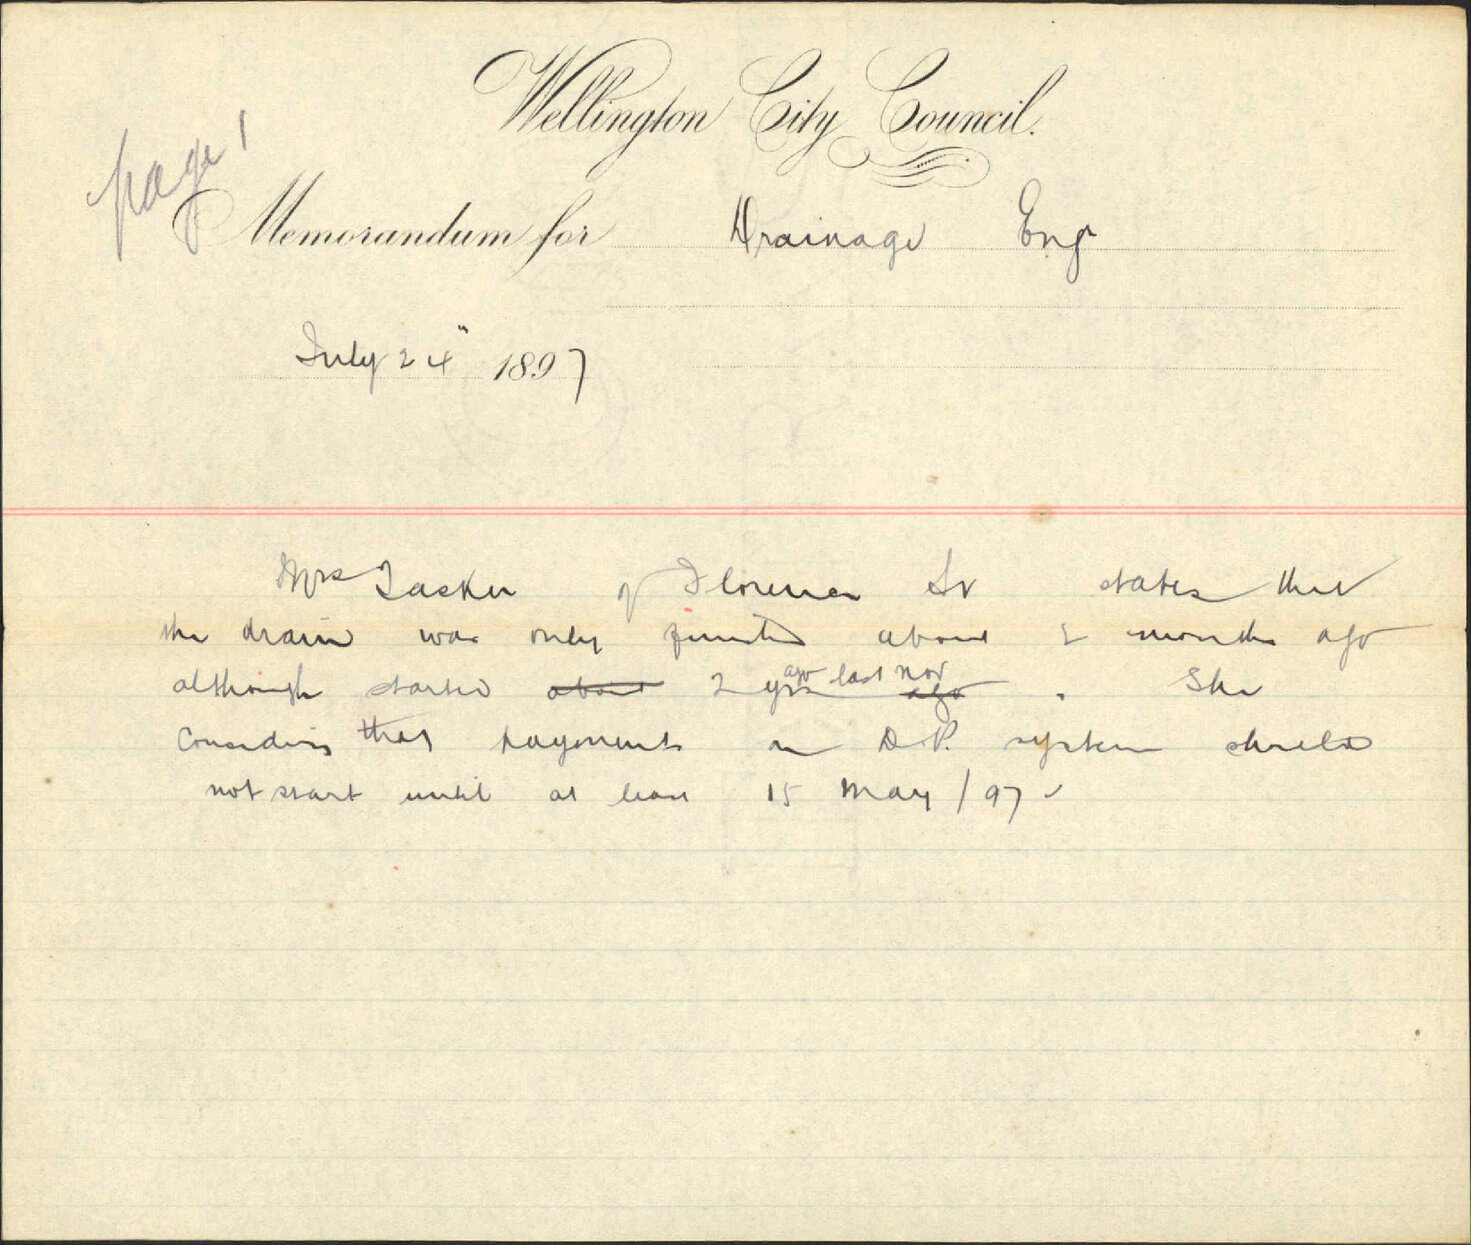 Wellington City Council.
page 1
Memorandum for Drainage Engr
July 24" 1897
Mrs Tasker of Florence St states that
the drain was only finished about 2 months ago
although started about 2 yrs ago last nov ago. She
considers that payments on D.P. system should
not start until at least 15 May / 97